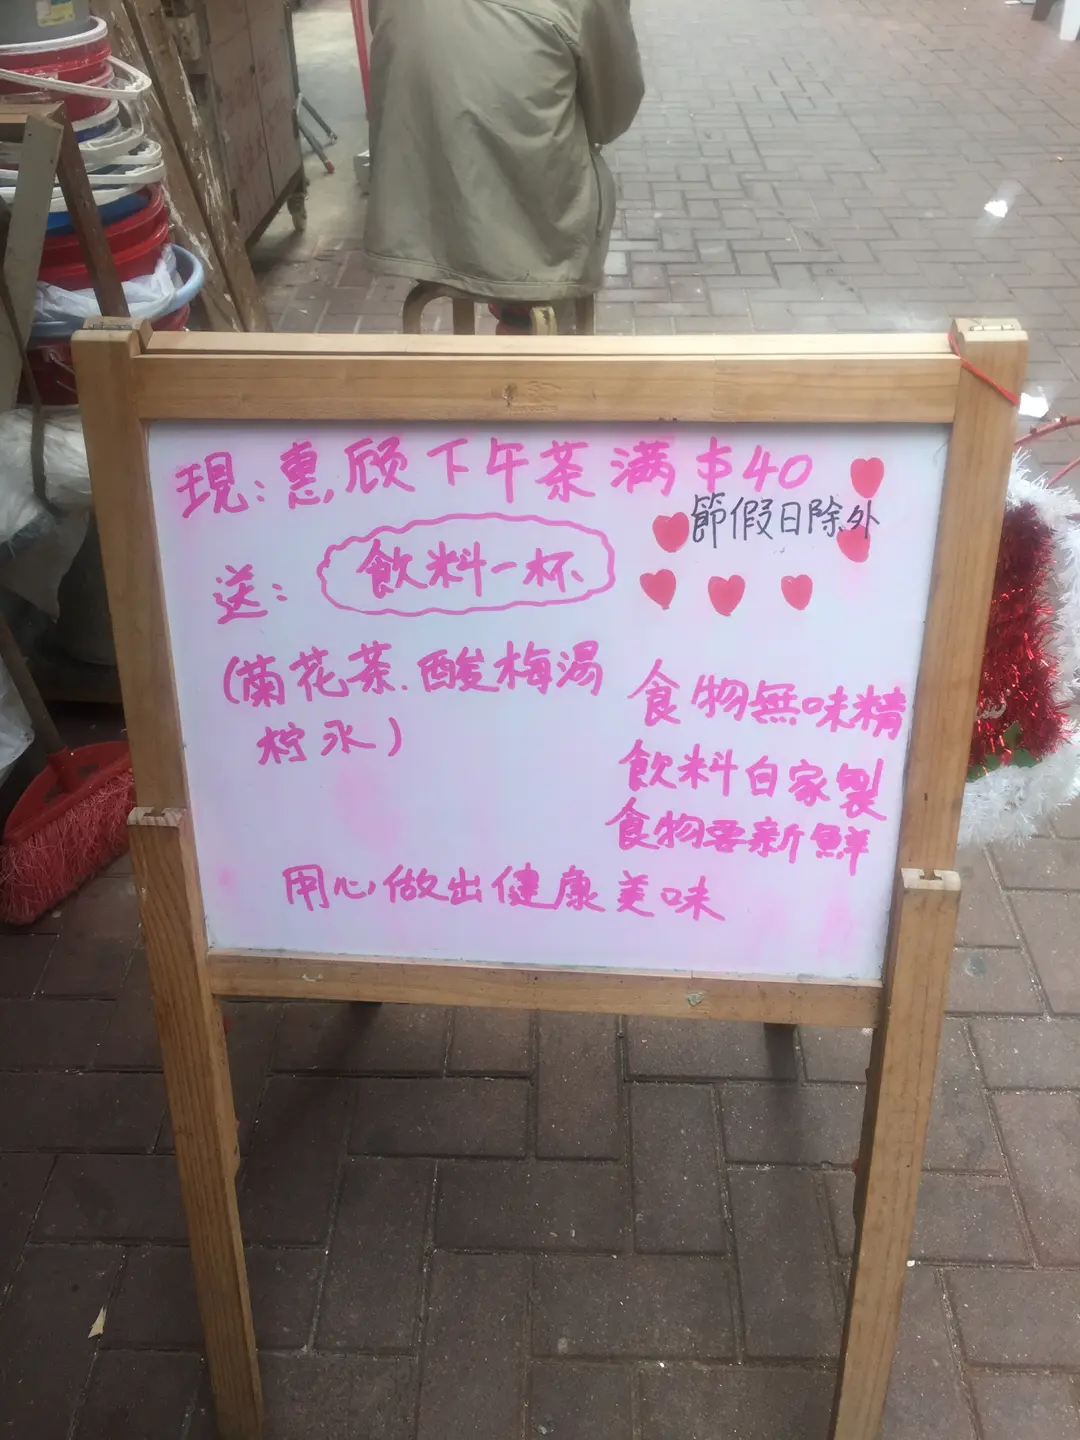 現:惠顾下午茶满$40
節假日除外
送:飲料一杯
(菊花茶.酸梅湯
柠水)
食物無味精
飲料自家製
食物要新鮮
用心做出健康美味